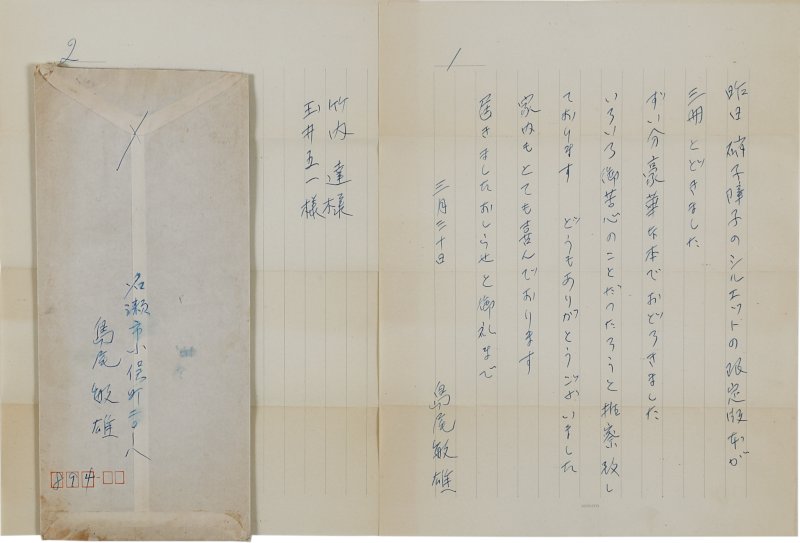 1
昨日 硝子障子のシルエットの限定版本が
三冊とどきました
ずい分豪華な本でおどろきました
いろいろ御苦心のことだったろうと推察致し
ております どうもありがとうございました
家内もとても喜んでおります
届きましたおしらせと御礼まで
三月三十日
島尾敏雄
2
竹内 達様
玉井五一様
名瀬市小俣町
島尾敏雄
894